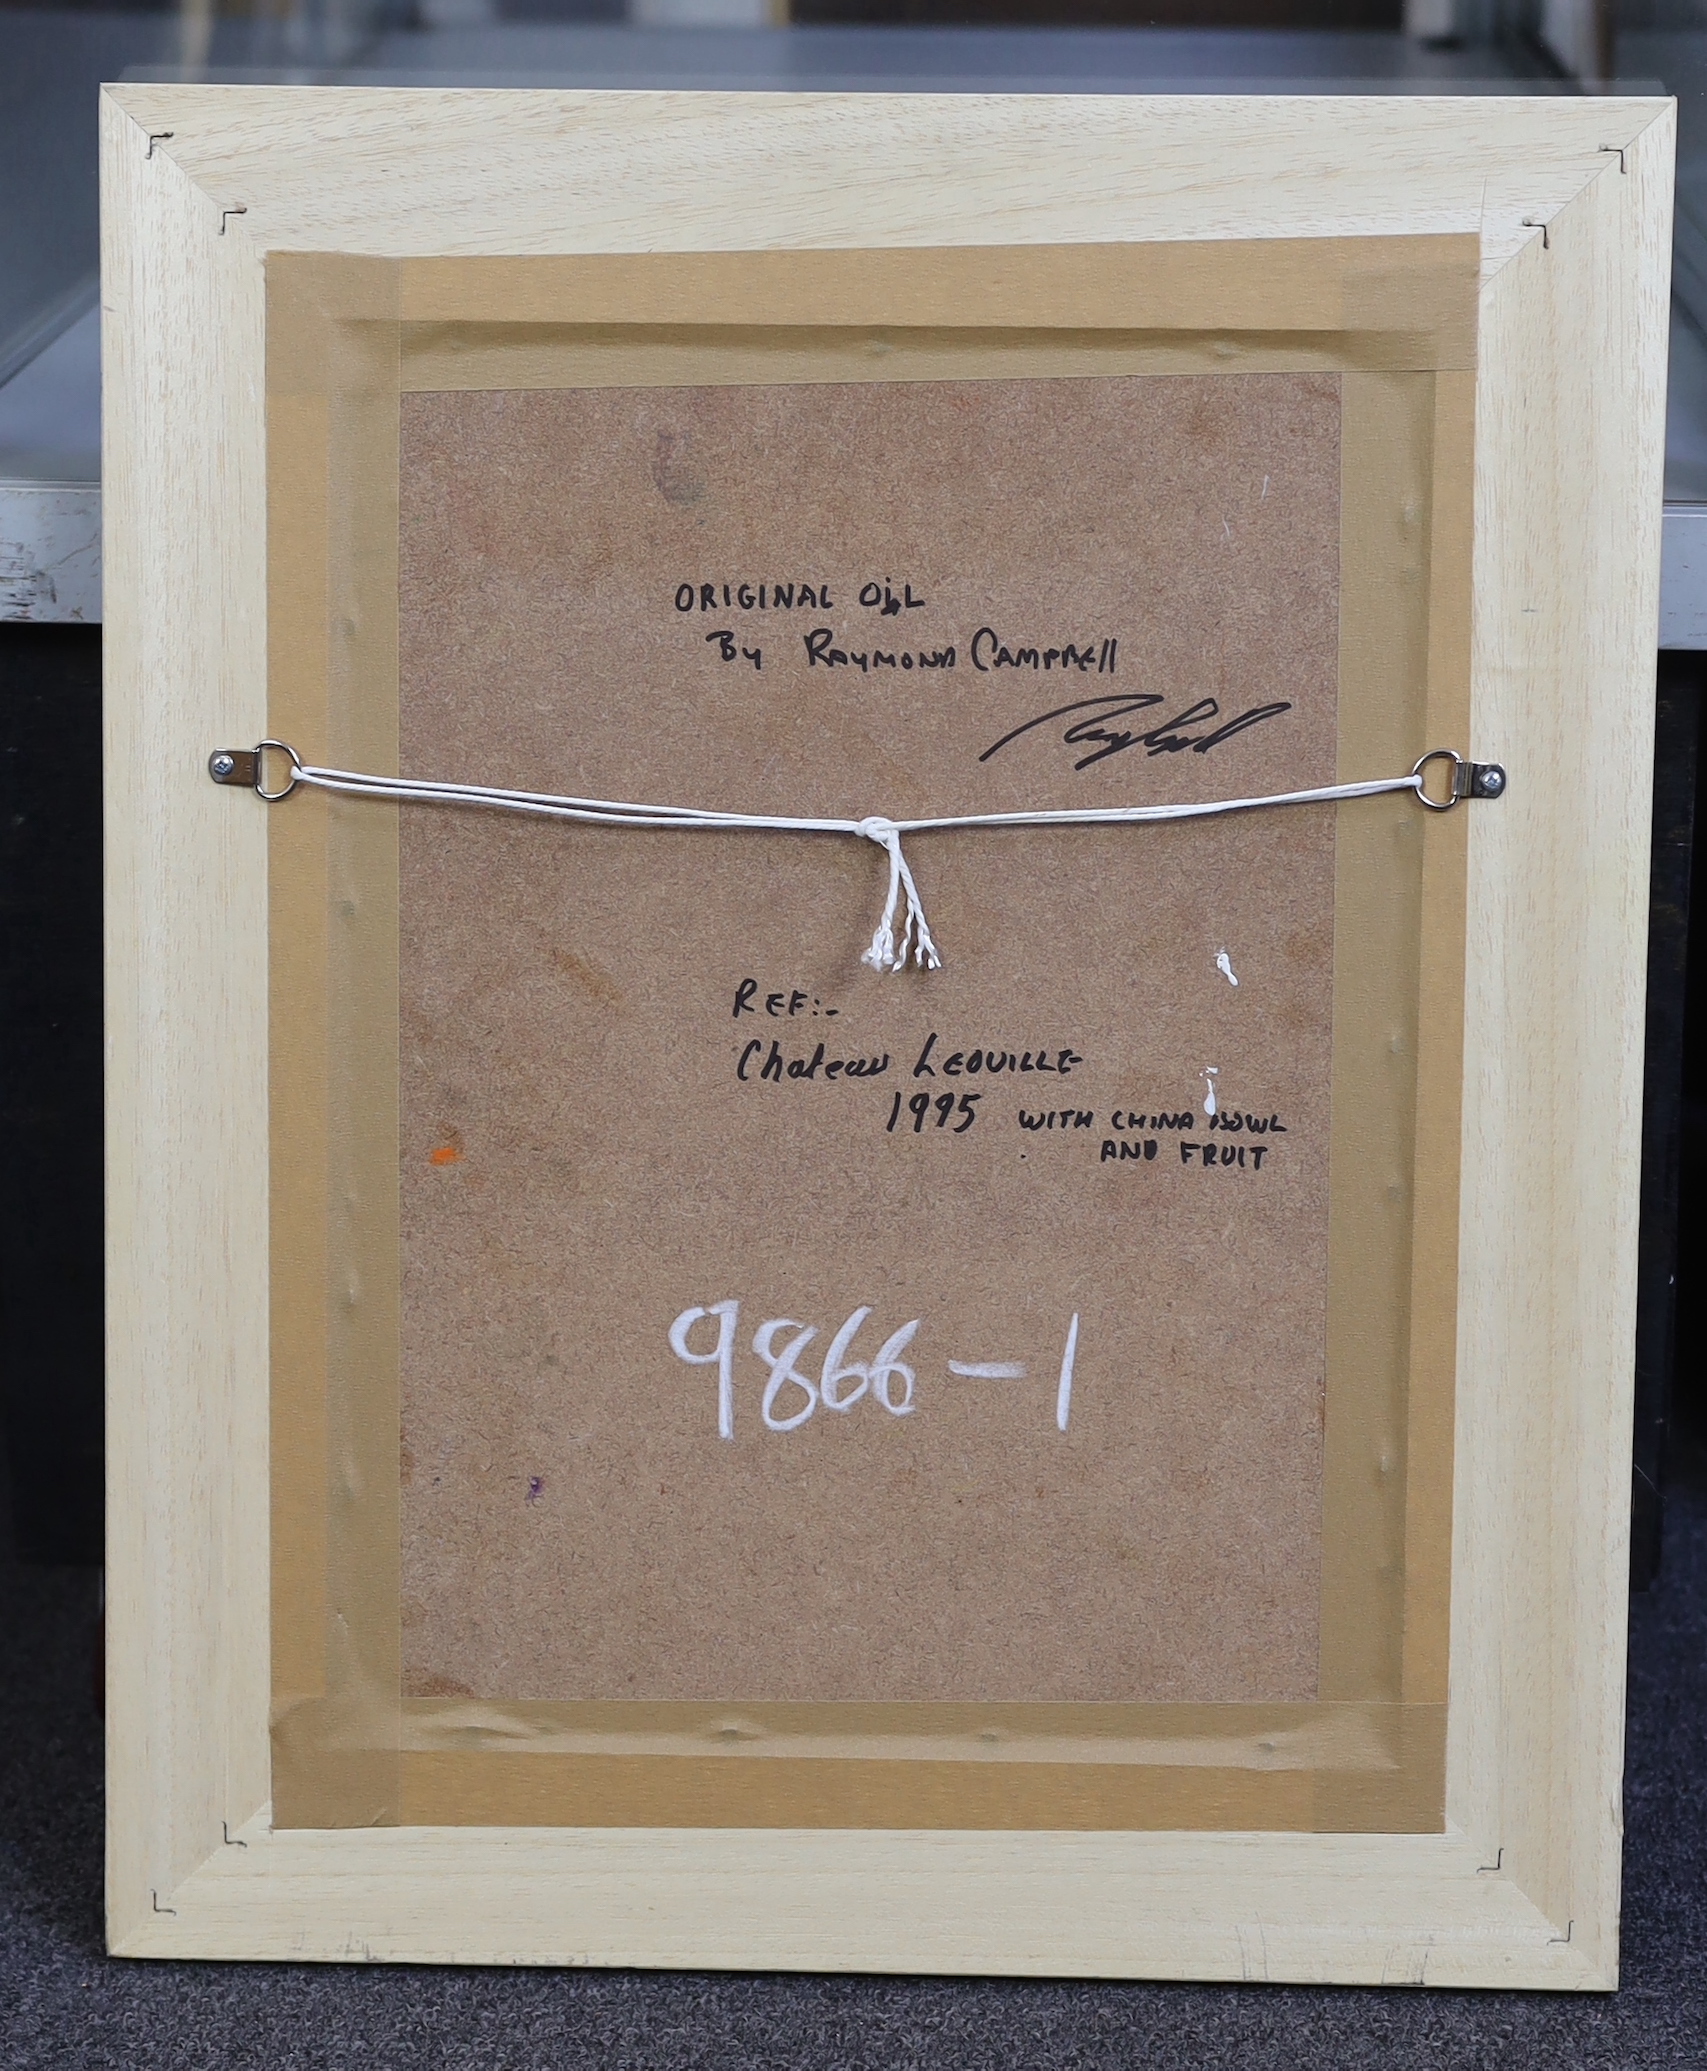 ORIGINAL OIL
By RAYMOND CAMPBEll
REF:-
Chateau LEOVILLE
1995 WITH CHINA BOWL
AND FRUIT
9866-1